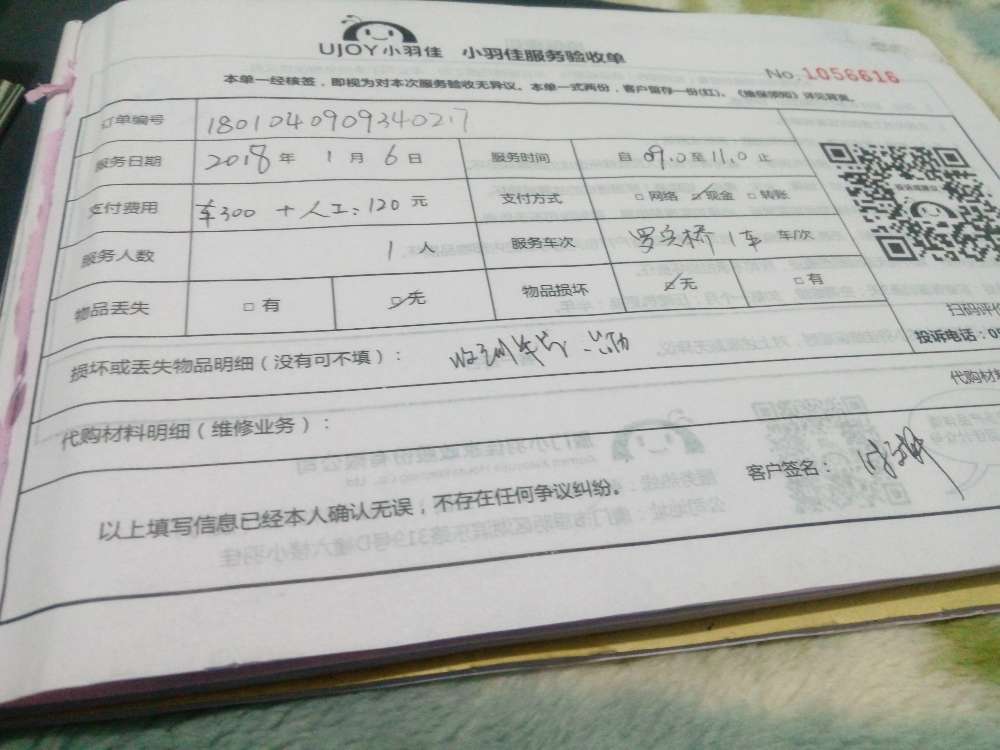 UJOY小羽佳 小羽佳服务验收单
No.1056616
本单一经核签，即视为对本次服务验收无异议。本单一式两份，客户留存一份(红)。《维保须知》详见背页。
订单编号 1801040909340217
服务日期 2018年 1月 6日 服务时间 自 09.0至11.0止
支付费用 车300 + 人工：120元 支付方式 □网络 ☑现金 □转账
服务人数 1人 服务车次 1车 车/次
物品丢失 □有 ☑无 物品损坏 ☑无 □有
扫码评价
损坏或丢失物品明细（没有可不填）：
投诉电话：05
代购材料
代购材料明细（维修业务）：
客户签名：
以上填写信息已经本人确认无误，不存在任何争议纠纷。